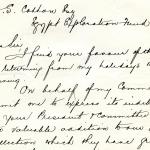 S. Cotton Esq
Egypt Exploration Fund
Sir
I find your favour of the
returning from my holidays
On behalf of my Comm
me to express its
your President & Committee
valuable addition to our
lection which they have g